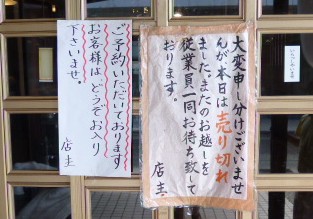 大変申し分けございませ
んが本日は売り切れ
ました。またのお越しを
従業員一同お待ち致して
おります。
店主
ご予約いただいております
お客様はどうぞお入り
下さいませ。
店主